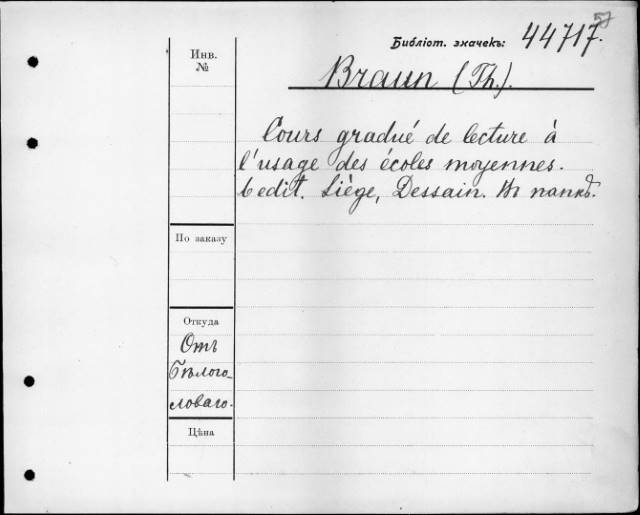 57
Библіот. значекъ: 44717.
Инв.
№
Braun (Th.).
Cours gradué de lecture à
l'usage des écoles moyennes.
6 edit. Liège, Dessain. Въ папкѣ.
По заказу
Откуда
Отъ
Бѣлого-
ловаго.
Цѣна